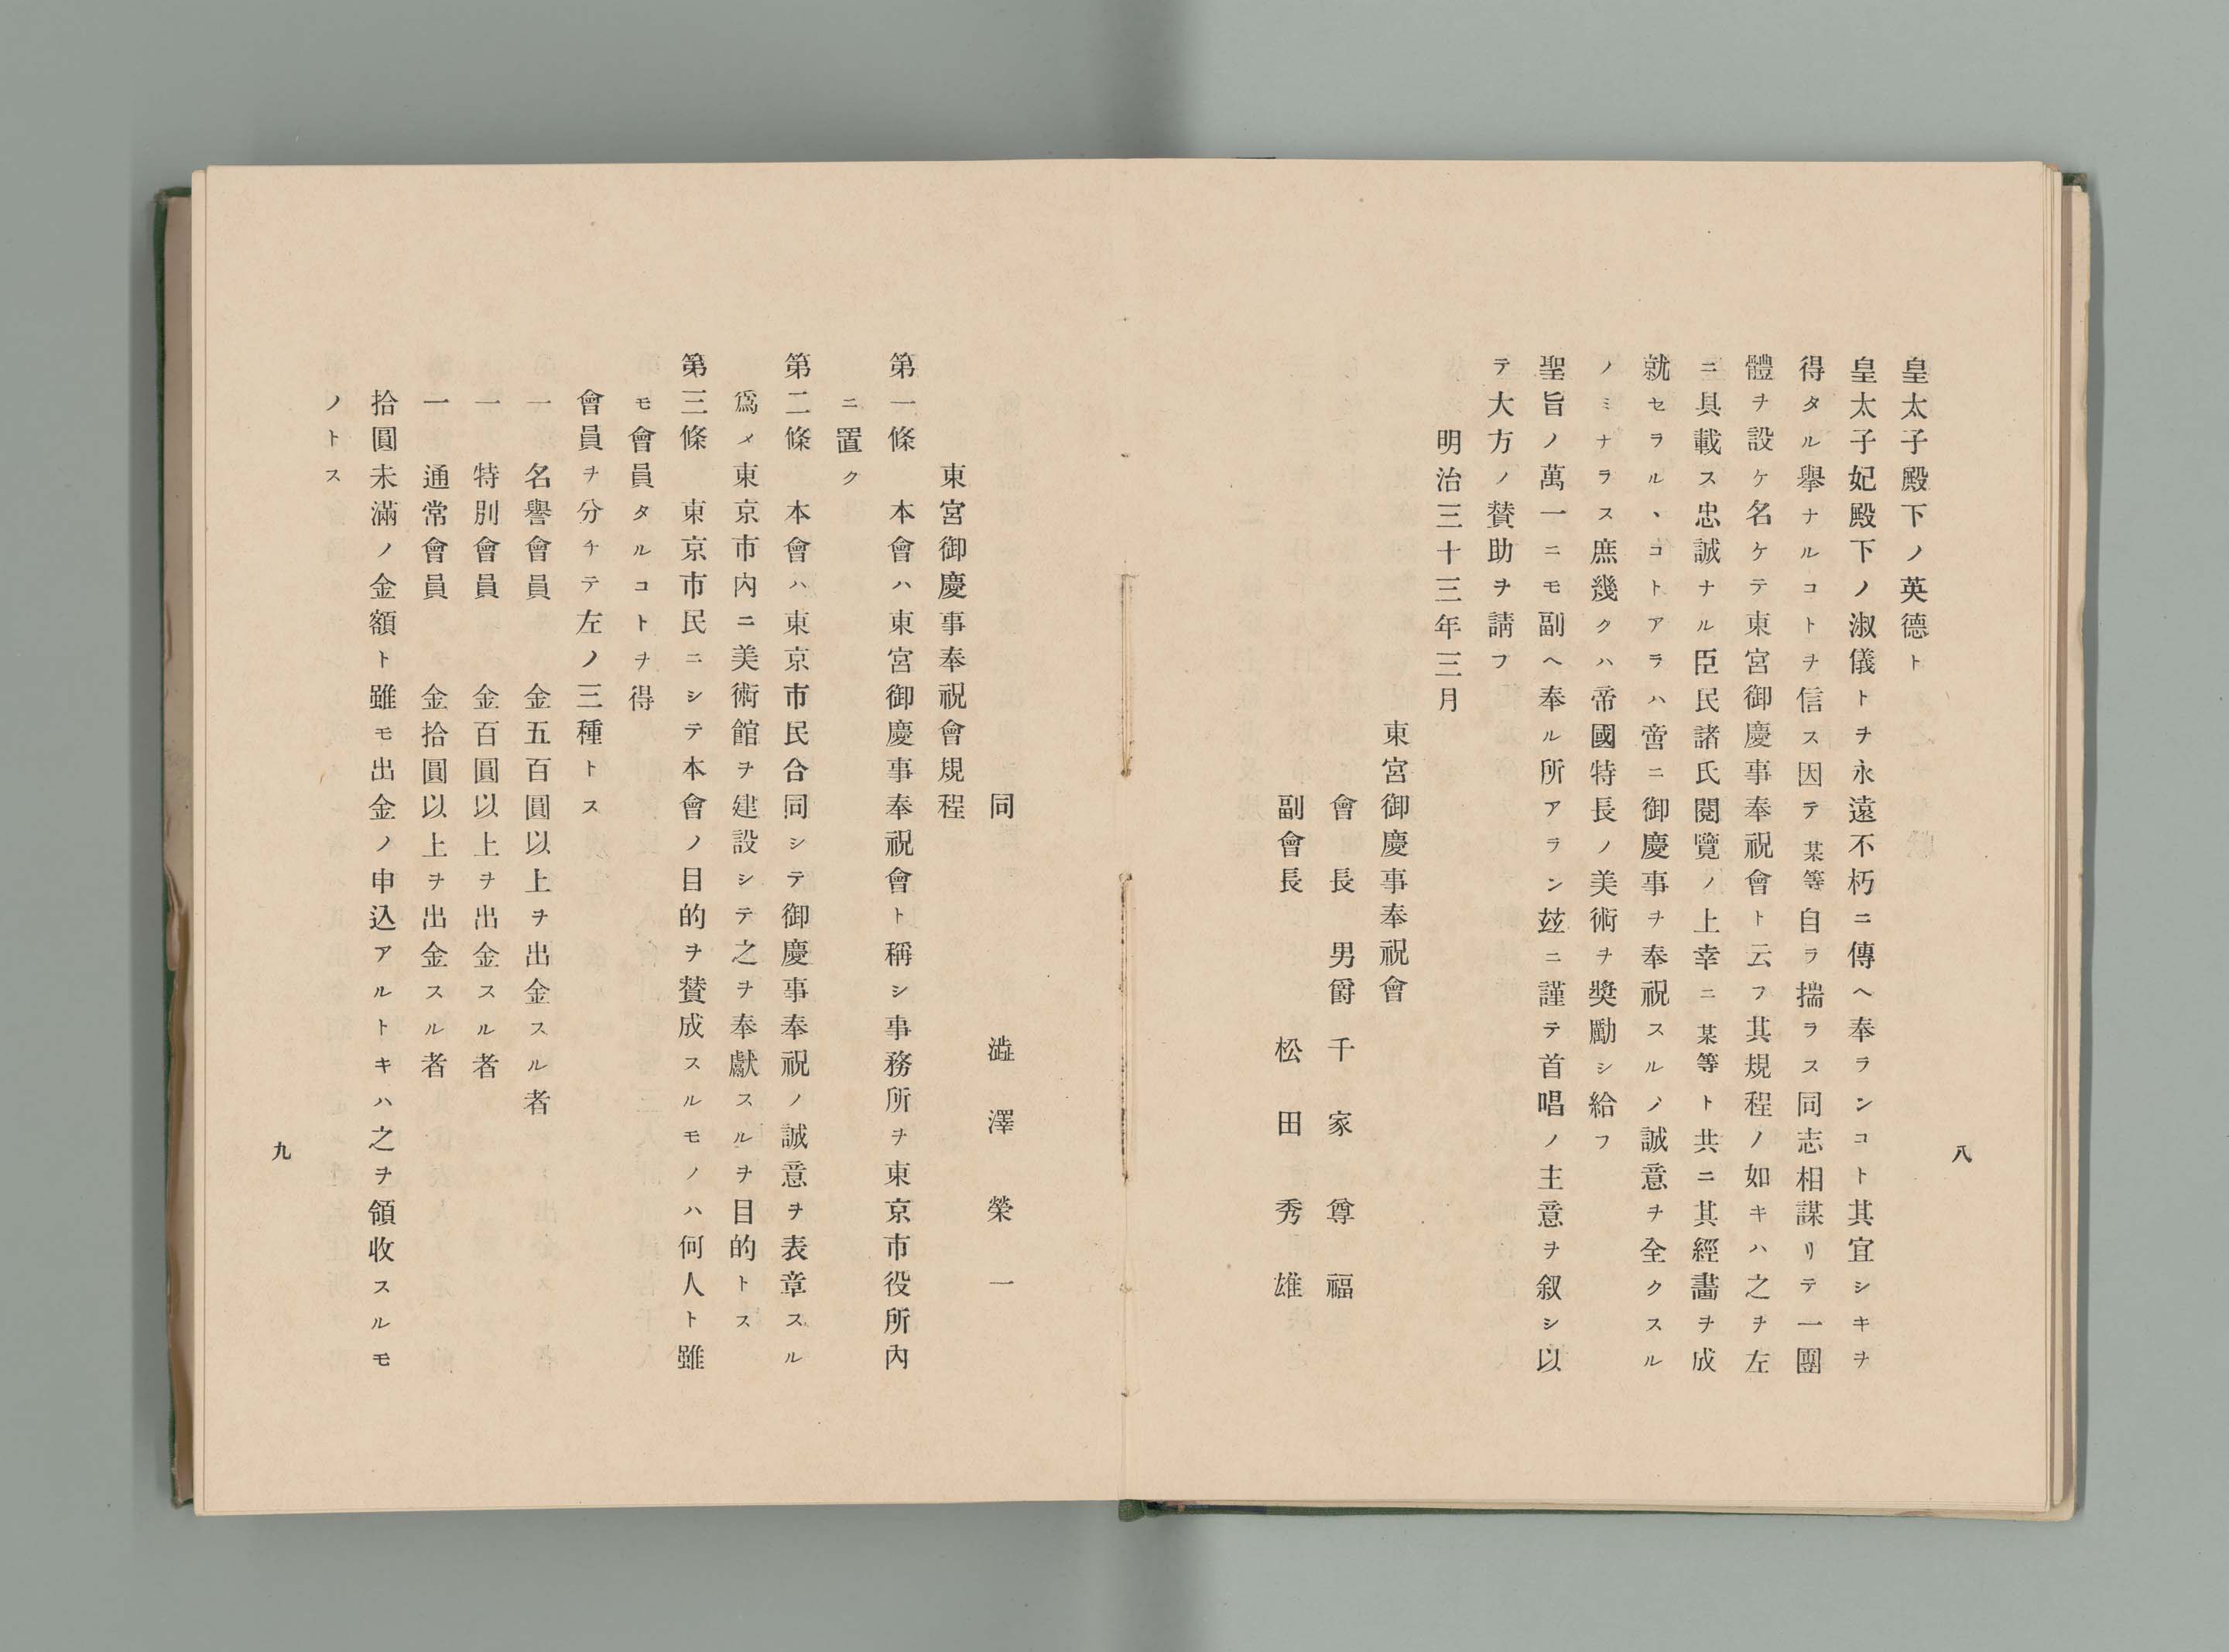 八
皇太子殿下ノ英德ト
皇太子妃殿下ノ淑儀トヲ永遠不朽ニ傳ヘ奉ランコト其宜シキヲ
得タル擧ナルコトヲ信ス因テ某等自ラ揣ラス同志相謀リテ一團
體ヲ設ケ名ケテ東宮御慶事奉祝會ト云フ其規程ノ如キハ之ヲ左
ニ具載ス忠誠ナル臣民諸氏閱覽ノ上幸ニ某等ト共ニ其經畵ヲ成
就セラルヽコトアラハ啻ニ御慶事ヲ奉祝スルノ誠意ヲ全クスル
ノミナラス庶幾クハ帝國特長ノ美術ヲ奬勵シ給フ
聖旨ノ萬一ニモ副ヘ奉ル所アラン玆ニ謹テ首唱ノ主意ヲ叙シ以
テ大方ノ賛助ヲ請フ
明治三十三年三月
東宮御慶事奉祝會
會長 男爵 千家尊福
副會長 松田秀雄
同 澁澤榮一
東宮御慶事奉祝會規程
第一條 本會ハ東宮御慶事奉祝會ト稱シ事務所ヲ東京市役所內
ニ置ク
第二條 本會ハ東京市民合同シテ御慶事奉祝ノ誠意ヲ表章スル
爲メ東京市內ニ美術館ヲ建設シテ之ヲ奉獻スルヲ目的トス
第三條 東京市民ニシテ本會ノ目的ヲ賛成スルモノハ何人ト雖
モ會員タルコトヲ得
會員ヲ分チテ左ノ三種トス
一 名譽會員 金五百圓以上ヲ出金スル者
一 特別會員 金百圓以上ヲ出金スル者
一 通常會員 金拾圓以上ヲ出金スル者
拾圓未滿ノ金額ト雖モ出金ノ申込アルトキハ之ヲ領收スルモ
ノトス
九